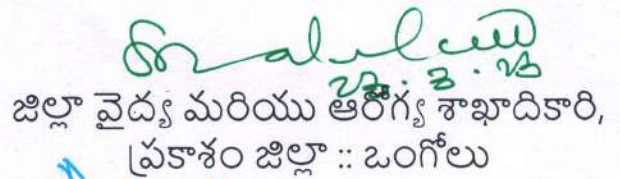 జిల్లా వైద్య మరియు ఆరోగ్య శాఖాదికారి,
ప్రకాశం జిల్లా :: ఒంగోలు